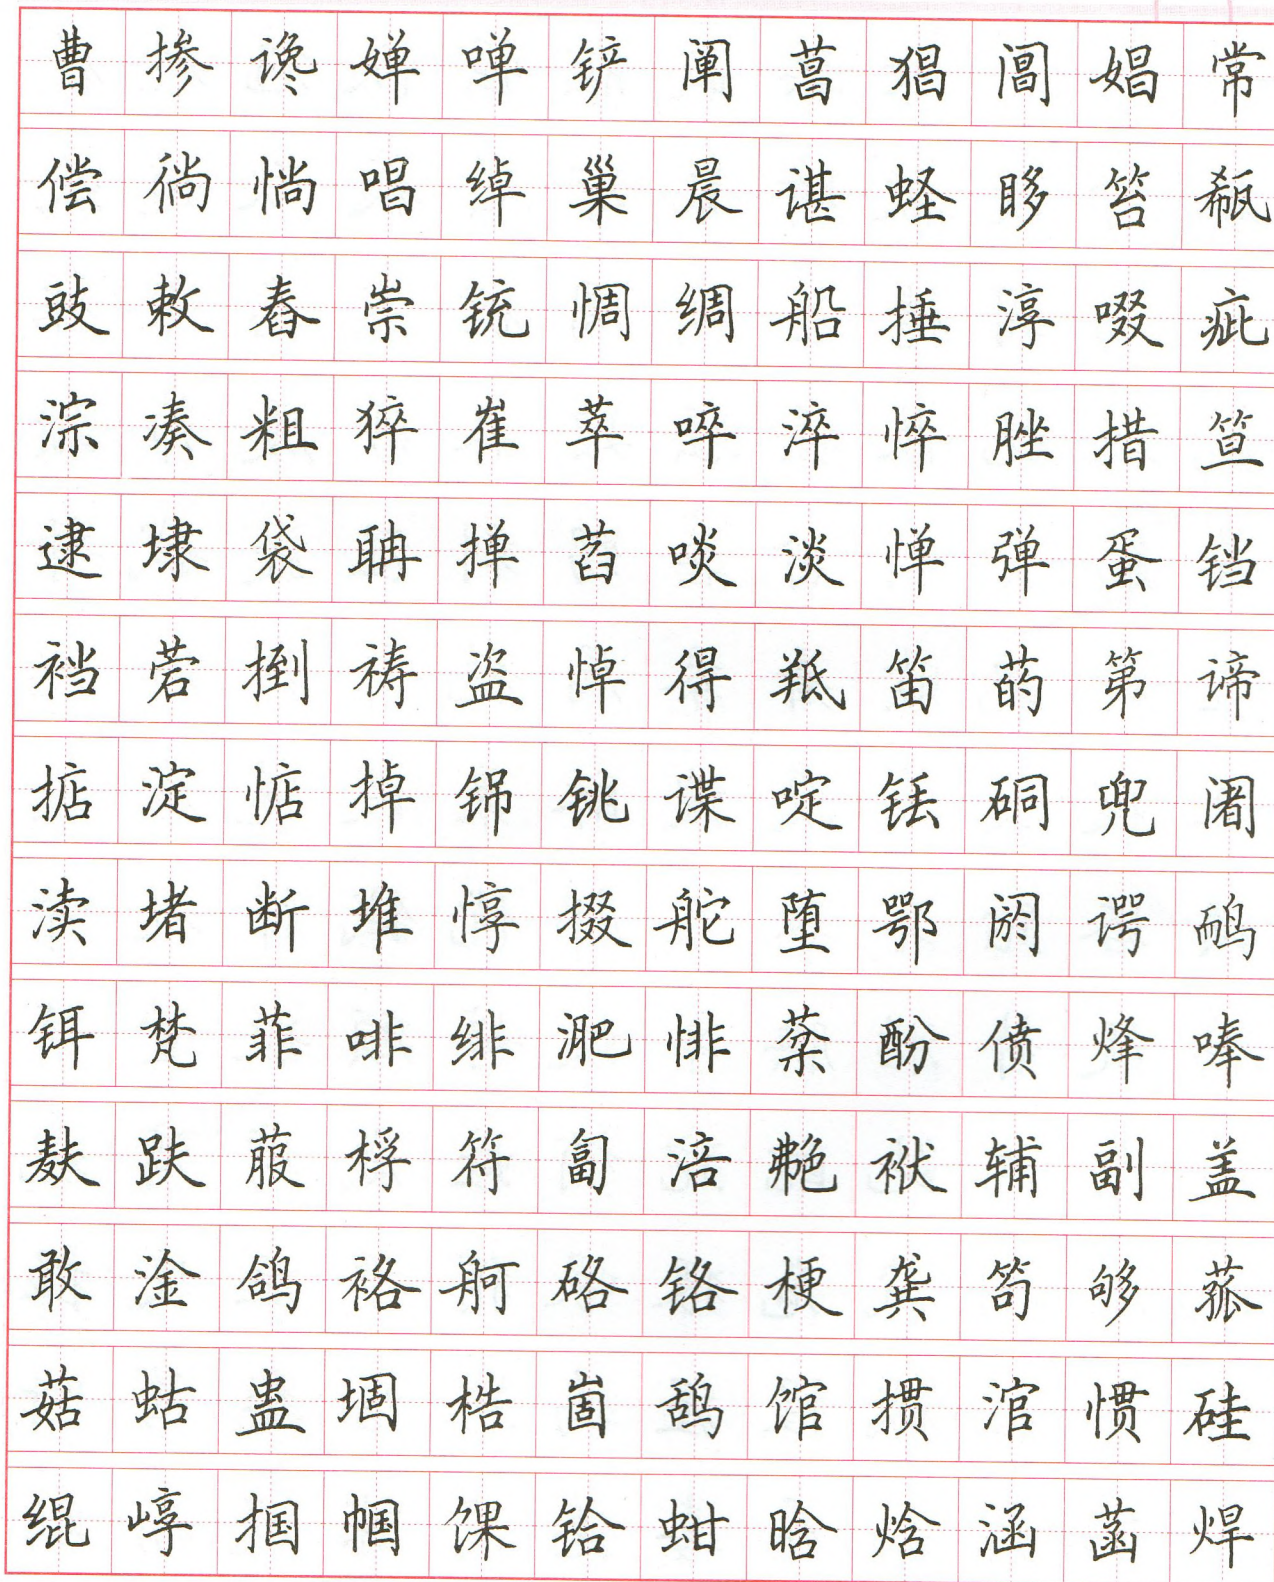 曹掺谗婵啴铲阐菖猖阊娼常
偿徜惝唱绰巢晨谌蛏眵笞瓻
豉敕舂崇铳惆绸船捶淳啜疵
淙凑粗猝崔萃啐淬悴脞措笪
逮埭袋聃掸萏啖淡惮弹蛋铛
裆菪捯祷盗悼得羝笛菂第谛
掂淀惦掉铞铫谍啶铥硐兜阇
渎堵断堆惇掇舵堕鄂阏谔鸸
铒梵菲啡绯淝悱棻酚偾烽唪
麸趺菔桴符匐涪艴袱辅副盖
敢淦鸽袼舸硌铬梗龚笱够菰
菇蛄蛊堌梏崮鸹馆掼涫惯硅
绲崞掴帼馃铪蚶晗焓涵菡焊